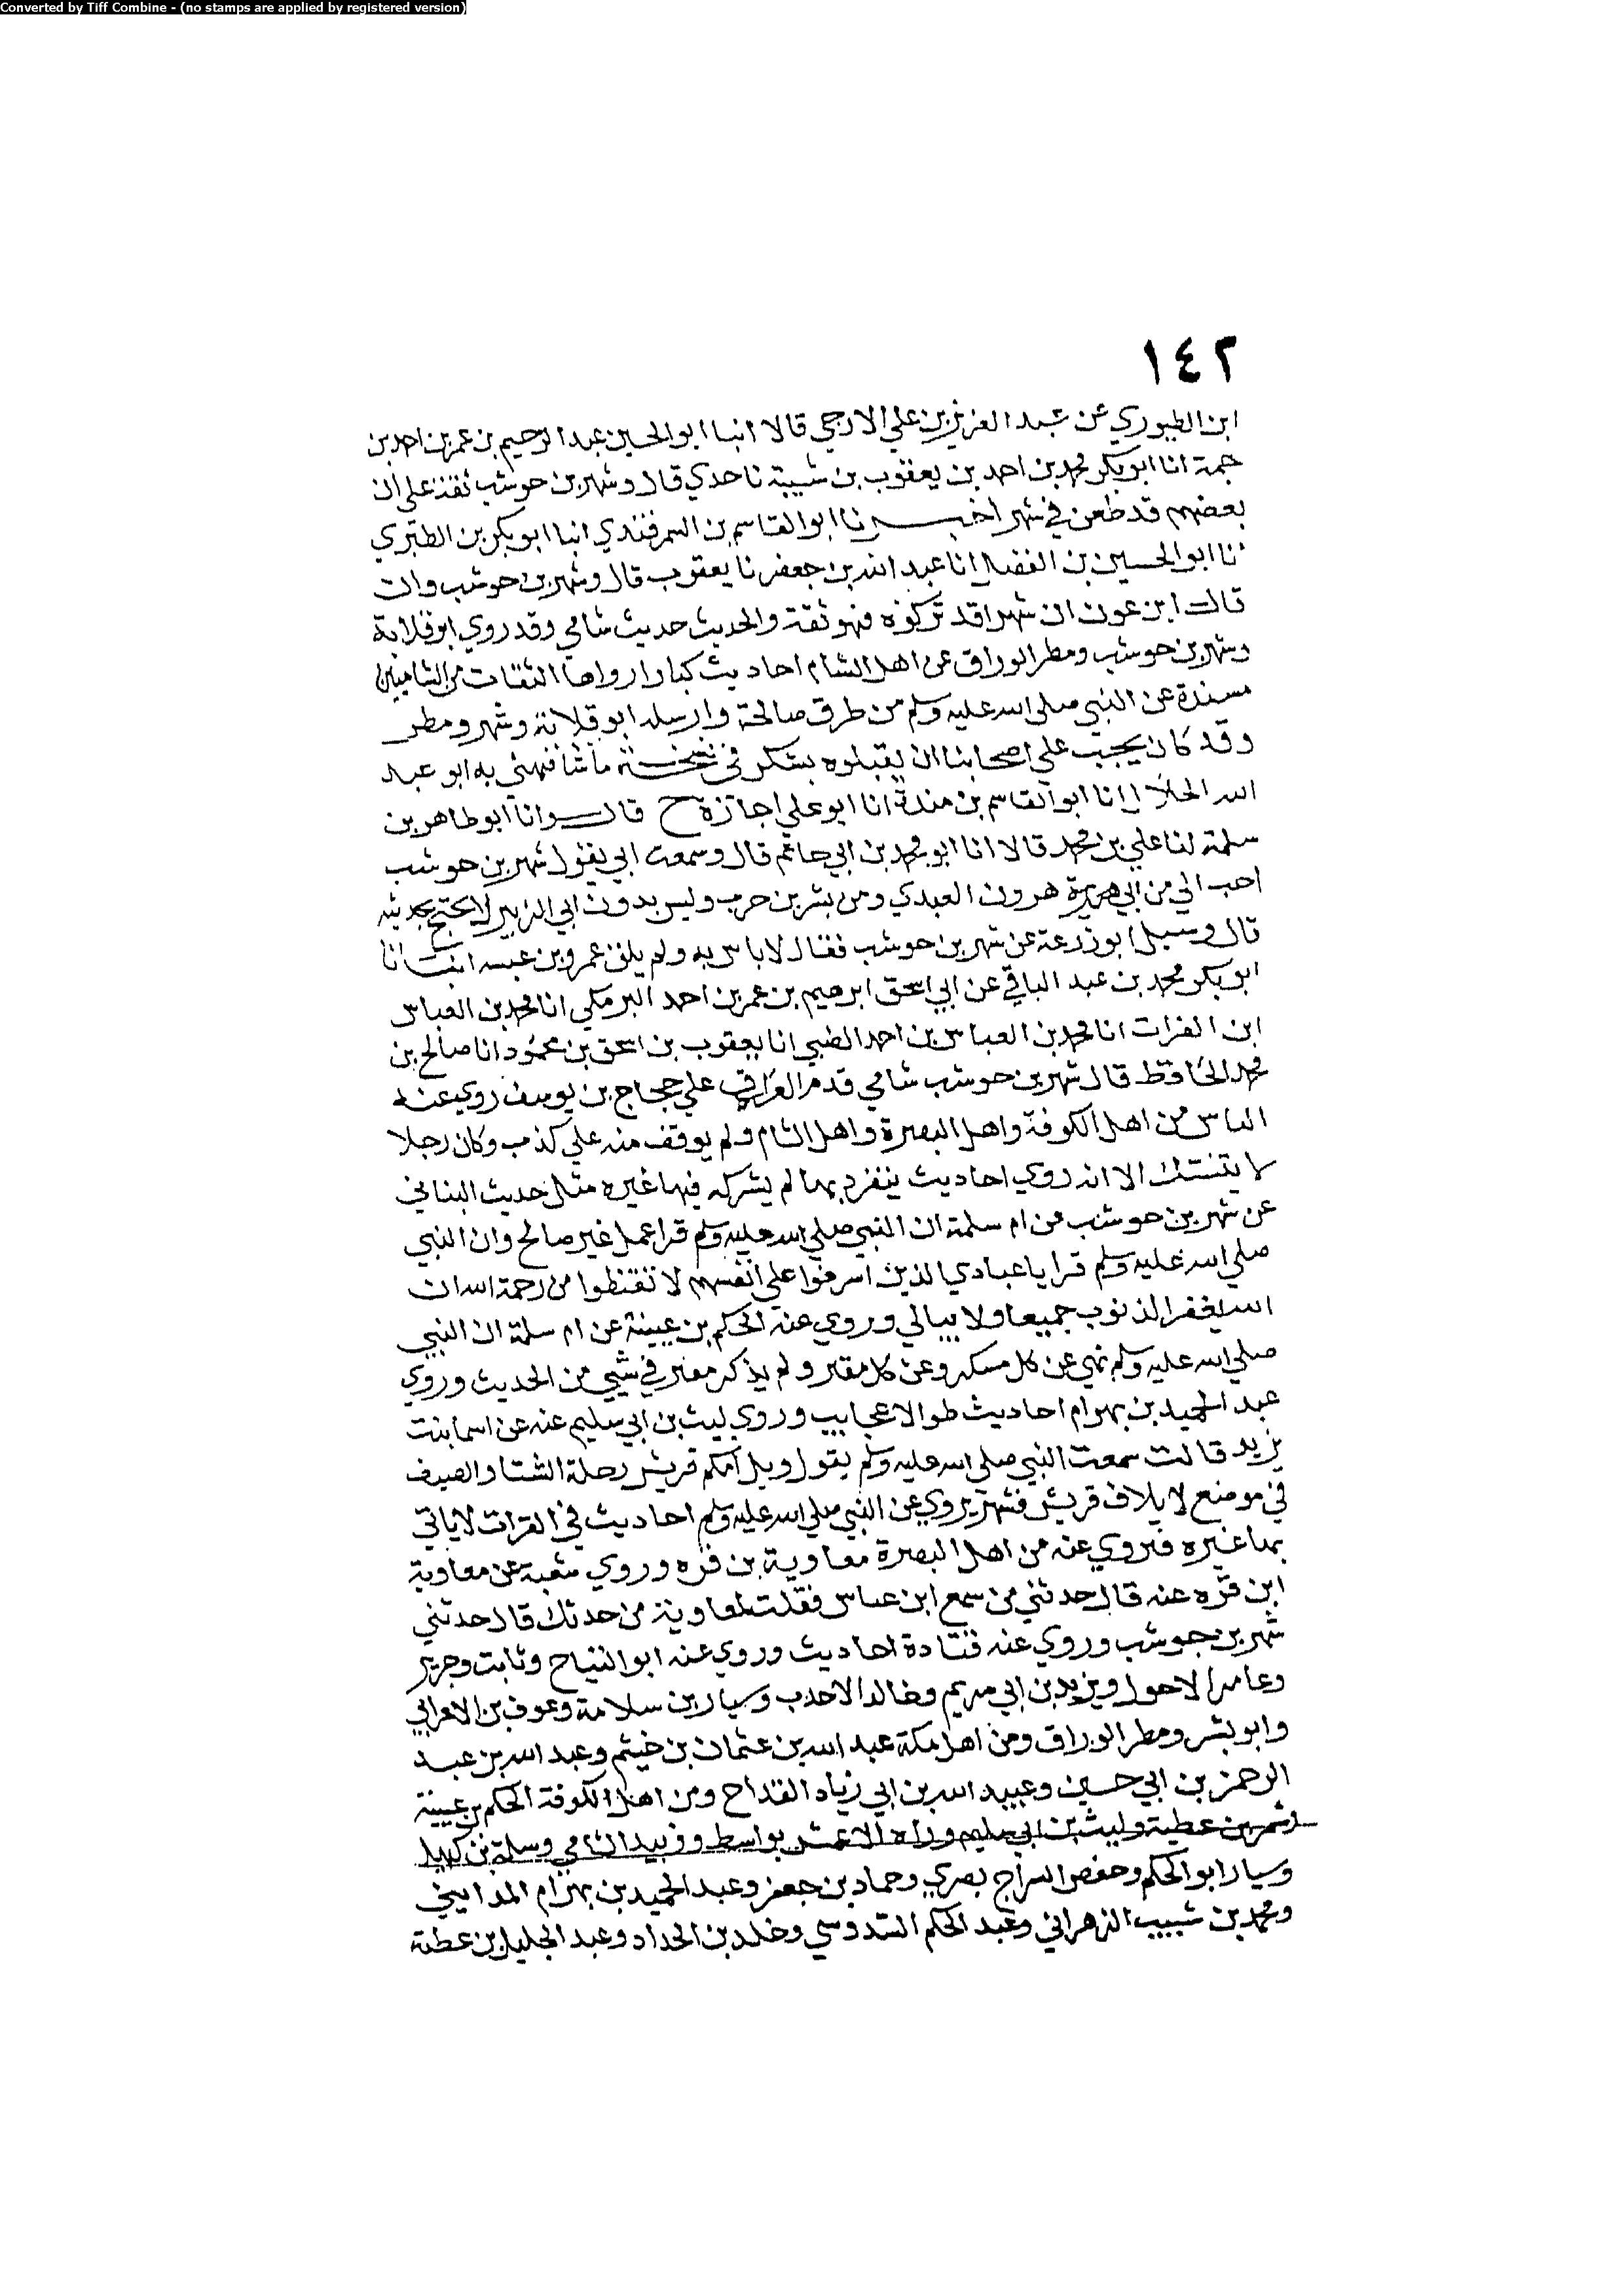 Converted by Tiff Combine - (no stamps are applied by registered version)
١٤٢
ابن الطيوري عن عبد العزيز بن علي الازجي قالا انبا ابو الحسين عبد الرحيم بن عمر بن احمد بن
حمة انا ابو بكر محمد بن احمد بن يعقوب بن شيبة نا جدي قال وشهر بن حوشب ثقة علي ان
بعضهم قد طعن في شهر اخبرنا ابو القاسم بن السمرقندي انبا ابو بكر بن الطبري
انا ابو الحسين بن الفضل انا عبد الله بن جعفر نا يعقوب قال وشهر بن حوشب وان
قال ابن عون ان شهرا قد تركوه فهو ثقة والحديث حديث شامي وقد روي ابو قلابة
وشهر بن حوشب ومطر الوراق عن اهل الشام احاديث كبارا رواها الثقات من الشاميين
مسندة عن النبي صلى الله عليه وسلم من طرق صالحة وارسله ابو قلابة وشهر ومطر
وقد كان يجب علي اصحابنا ان يقبلوه بشكر في نسخة ما شافهني به ابو عبد
الله الخلال انا ابو القاسم بن مندة انا ابو علي اجازة ح قال وانا ابو طاهر بن
سلمة انا علي بن محمد قالا انا ابو محمد بن ابي حاتم قال وسمعت ابي يقول شهر بن حوشب
احب الي من ابي هريرة هرون العبدي ومن بشر بن حرب وليس بدون ابي الزبير لا يحتج بحديثه
قال وسيل ابو زرعة عن شهر بن حوشب فقال لا باس به ولم يلق عمرو بن عبسه انبانا
ابو بكر محمد بن عبد الباقي عن ابي اسحق ابرهيم بن عمر بن احمد البرمكي انا محمد بن العباس
ابن الفرات انا محمد بن العباس بن احمد الضبي انا يعقوب بن اسحق بن محمود انا صالح بن
محمد الحافظ قال شهر بن حوشب شامي قدم العراق علي حجاج بن يوسف روي عنه
الناس من اهل الكوفة واهل البصرة واهل الشام ولم يوقف منه علي كذب وكان رجلا
لا يتنسك الا انه روي احاديث يتفرد بها لم يشركه فيها غيره مثل حديث البناني
عن شهر بن حوشب من ام سلمة ان النبي صلي الله عليه وسلم قرا عمل غير صالح وان النبي
صلي الله عليه وسلم قرا يا عبادي الذين اسرفوا علي انفسهم لا تقنطوا من رحمة الله ان
الله يغفر الذنوب جميعا ولا يبالي وروي عنه الحكم بن عيينة عن ام سلمة ان النبي
صلي الله عليه وسلم نهي عن كل مسكر وعن كل مفتر ولم يذكر مفتر في شيي من الحديث وروي
عبد الحميد بن بهرام احاديث طوالا عجايب وروي ليث بن ابي سليم عنه عن اسما بنت
يزيد قالت سمعت النبي صلي الله عليه وسلم يقول ويل امكم قريش رحلة الشتا والصيف
في موضع لايلاف قريش فشهر يروي عن النبي صلي الله عليه وسلم احاديث في القرات لا ياتي
بها غيره فروي عنه من اهل البصرة معاوية بن قره وروي شعبة عن معاوية
ابن قره عنه قال حدثني من سمع ابن عباس فقلت لمعاوية من حدثك قال حدثني
شهر بن حوشب وروي عنه قتادة احاديث وروي عنه ابو التياح وثابت وجرير
وعامر الاحول ويزيد بن ابي مريم وخالد الاحدب وسيار بن سلامة وعوف بن الاعرابي
وابو بشر ومطر الوراق ومن اهل مكة عبد الله بن عثمان بن خيثم وعبد الله بن عبد
الرحمن بن ابي حسين وعبيد الله بن ابي زياد القداح ومن اهل الكوفة الحكم بن عيينة
وشمر بن عطية وليث بن ابي سليم وراه الاعمش بواسط وزبيد اليامي وسلمة بن كهيل
وسيار ابو الحكم وحفص السراج بصري وحماد بن جعفر وعبد الحميد بن بهرام المدايني
ومحمد بن شبيب الزهراني وعبد الحكم السدوسي وخلد بن الحداد وعبد الجليل بن عطية